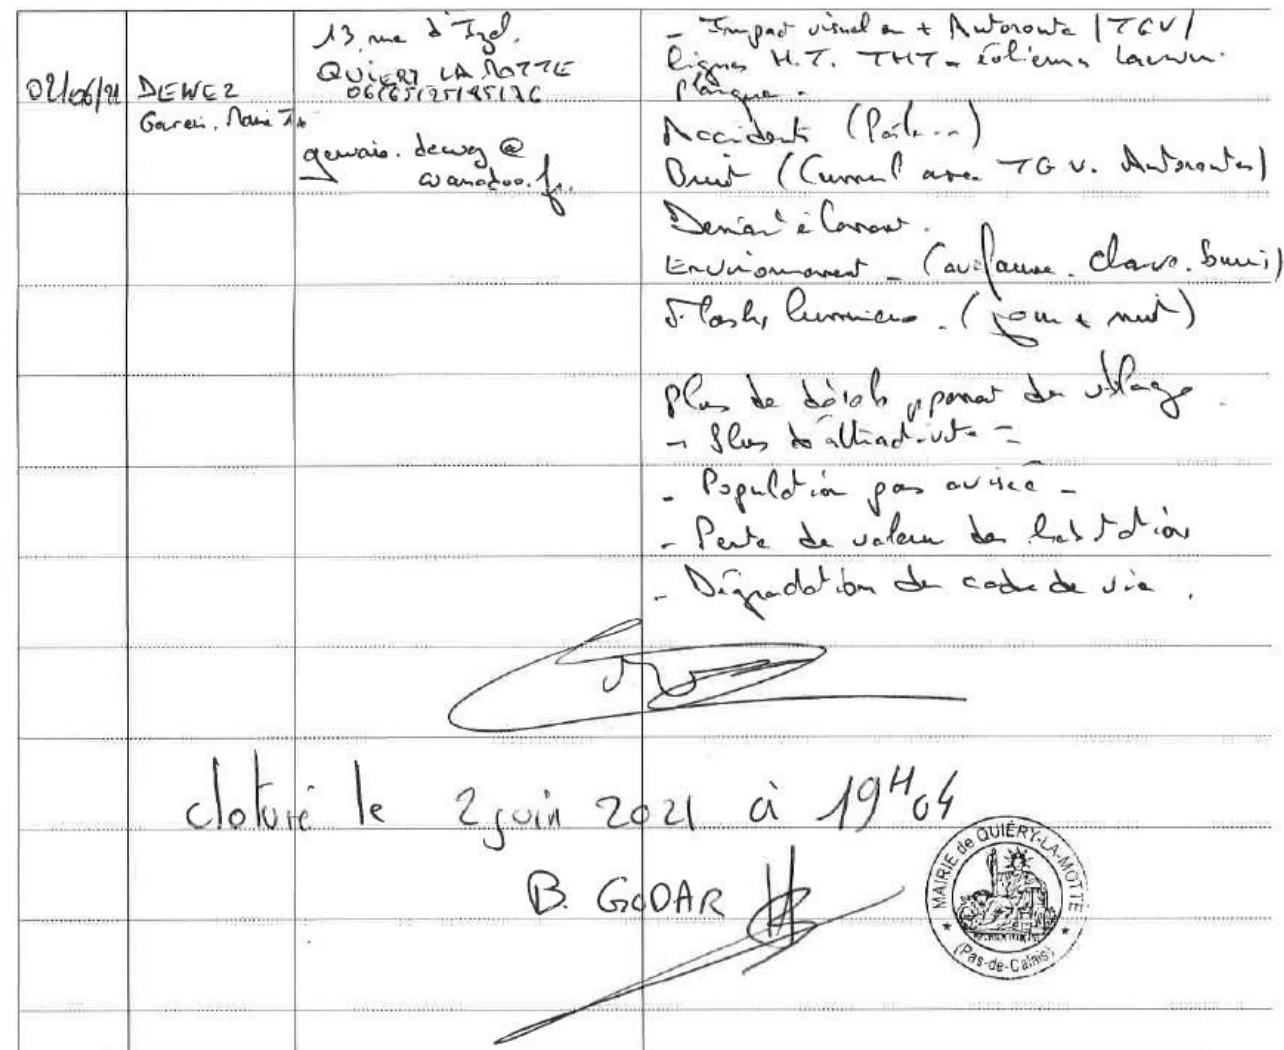 02/06/21
DEWEZ
13, rue d'Izel.
QUIERY LA MOTTE
gervais. dewez @
wanadoo.fr.
- Impact visuel en + Autoroute / TGV /
lignes H.T. THT - éoliennes
Planque -
Accidents (
Bruit (Cumul avec TGV. Autoroutes)
Environnement - (
Flashs lumineux. (jour + nuit)
Plus de du village.
- Plus d'attractivité -
- Population pas avisée -
- Perte de valeur des habitation
- Dégradation du cadre de vie.
cloturé le 2 juin 2021 à 19H04
B. GODAR
MAIRIE de QUIÉRY-LA-MOTTE
(Pas-de-Calais)